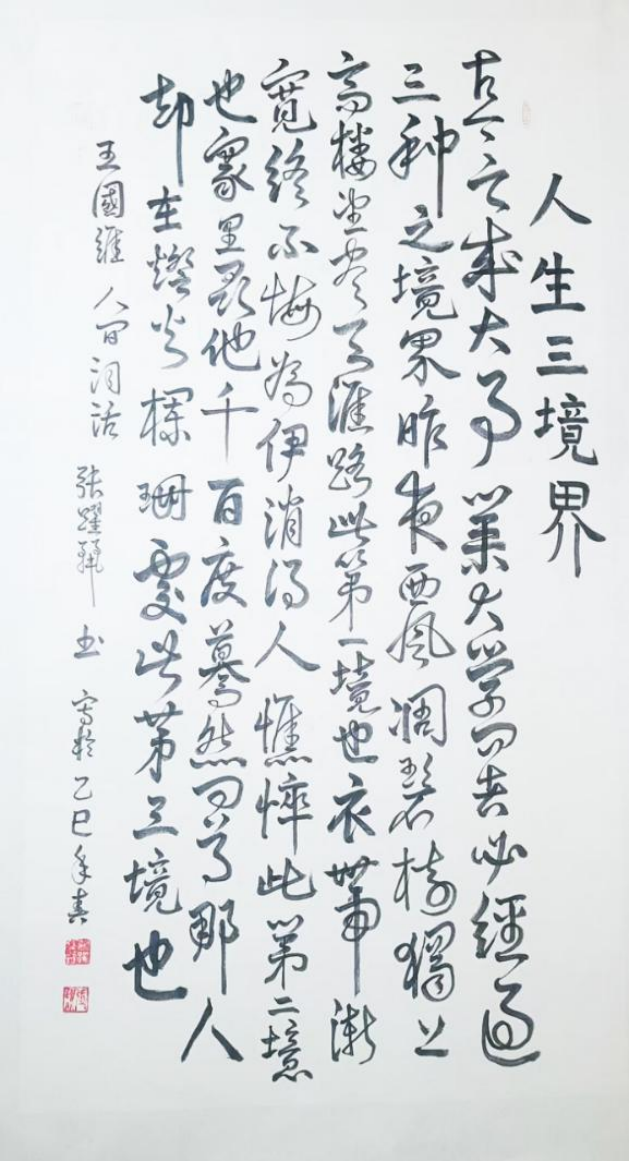 人生三境界
古今之成大事業大学问者必經過
三种之境界昨夜西風凋碧樹獨上
高楼望尽天涯路此第一境也衣帶漸
寬終不悔為伊消得人憔悴此第二境
也眾里尋他千百度驀然回首那人
却在燈火欄珊處此第三境也
王國維人间词话 张躍 书 寫於乙巳年春